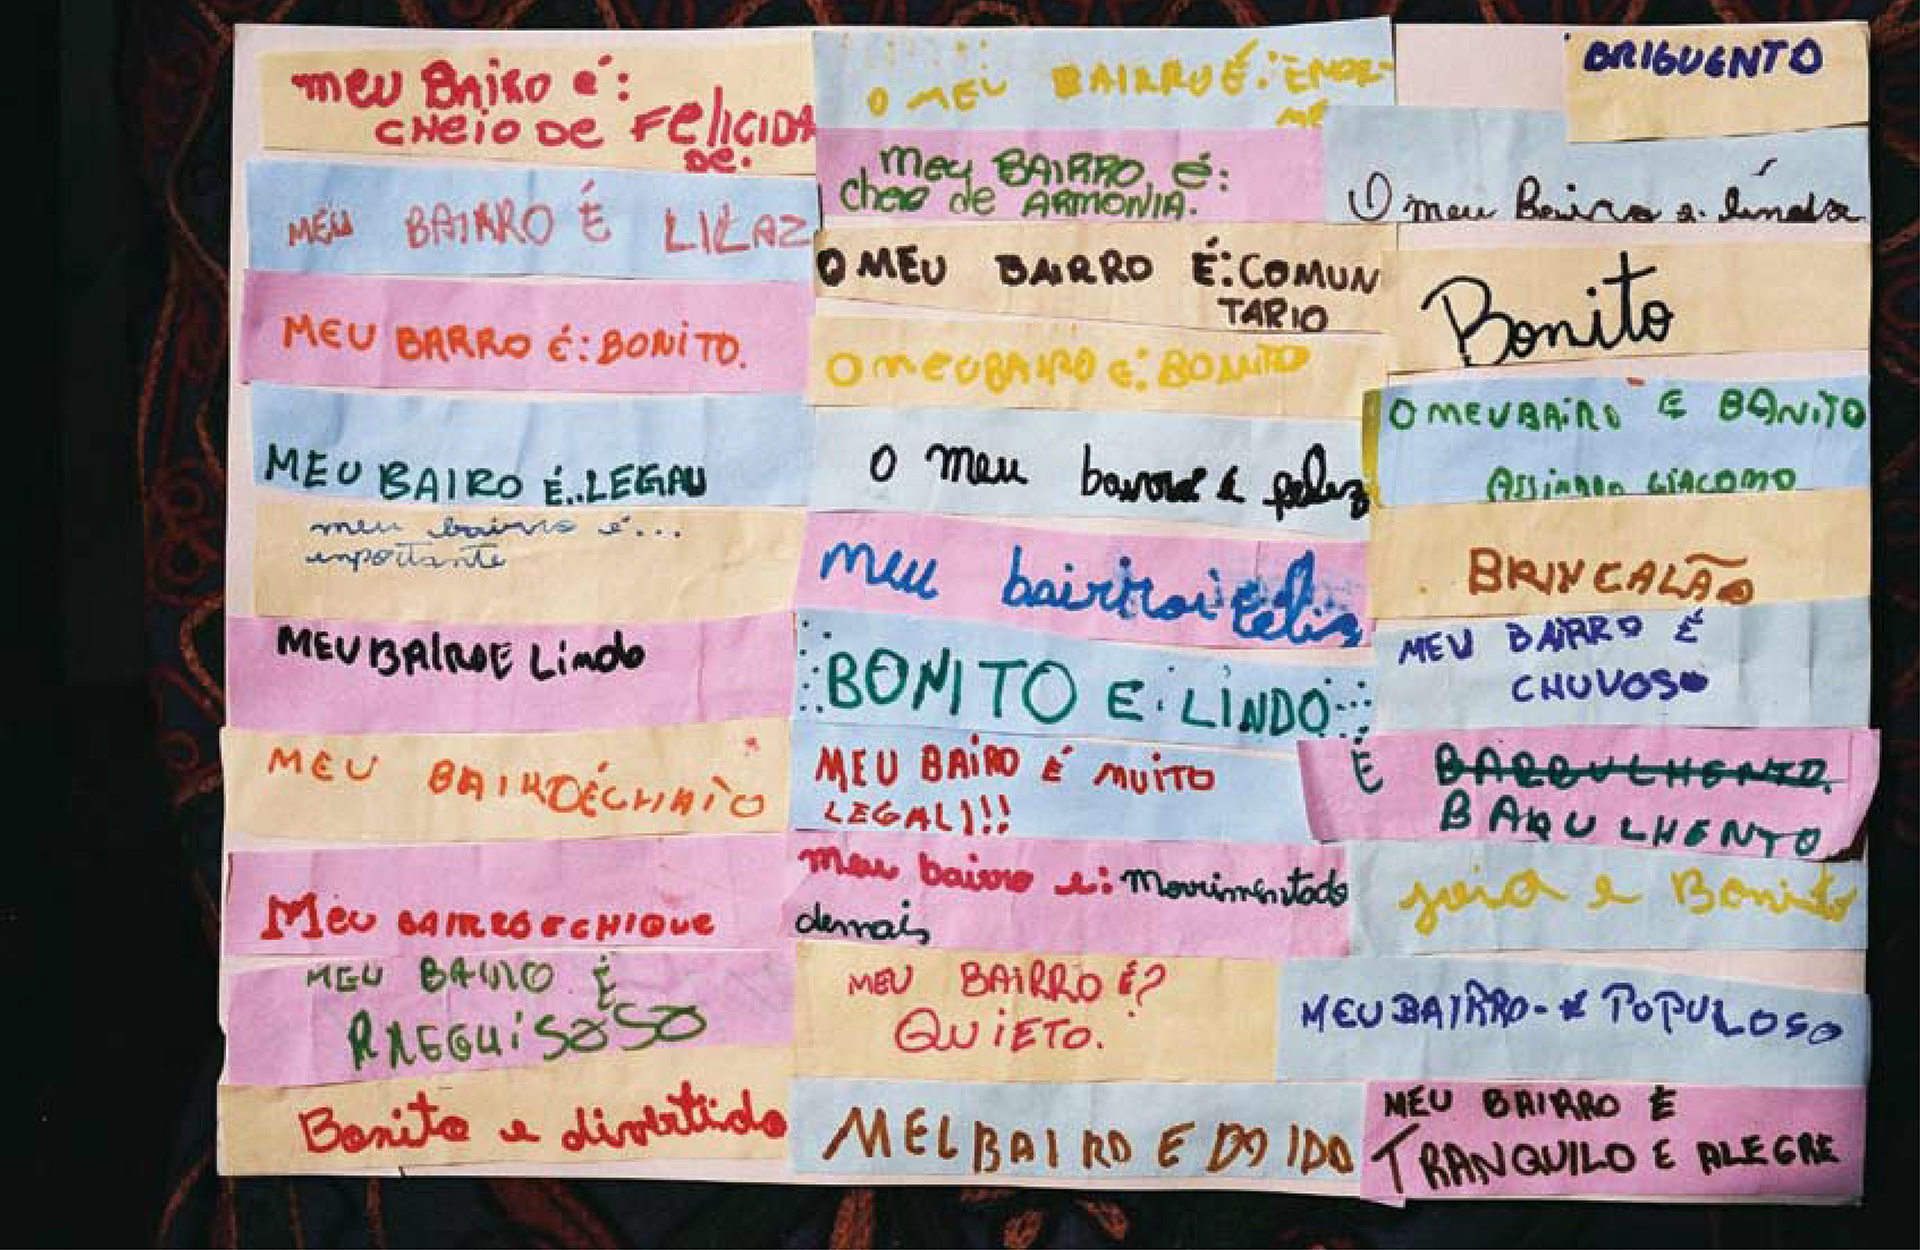 MEU BAIRO É:
CHEIO DE FELICIDA
DE.
MEU BAIRRO É LILAZ
MEU BARRO É: BONITO.
MEU BAIRO É..LEGAU
meu bairro é...
importante
MEU BAIRO E Lindo
MEU BAIRO É
MEU BAIRRO E CHIQUE
MEU BAIRO É
BONITO e divertido
O MEU BAIRRO É: ENOR-
ME
MEU BAIRRO É:
cheo de ARMONIA.
O MEU BAIRRO É: COMUN
TARIO
O MEU BAIRO É: BONITO
O meu é feliz
meu bairro feliz
BONITO E LINDO
MEU BAIRO É MUITO
LEGAL)!!
meu bairro e: movimentado
demais
MEU BAIRRO É?
QUIETO.
MEL BAIRO E DOIDO
BRIGUENTO
O meu Bairro e linda
Bonito
O MEU BAIRO E BANITO
ASSINADO GIACOMO
BRINCALÃO
MEU BAIRRO É
CHUVOSO
É BARRULHENTO.
BARULHENTO
joia e Bonito
MEU BAIRRO É POPULOSO
MEU BAIRRO É
TRANQUILO E ALEGRE